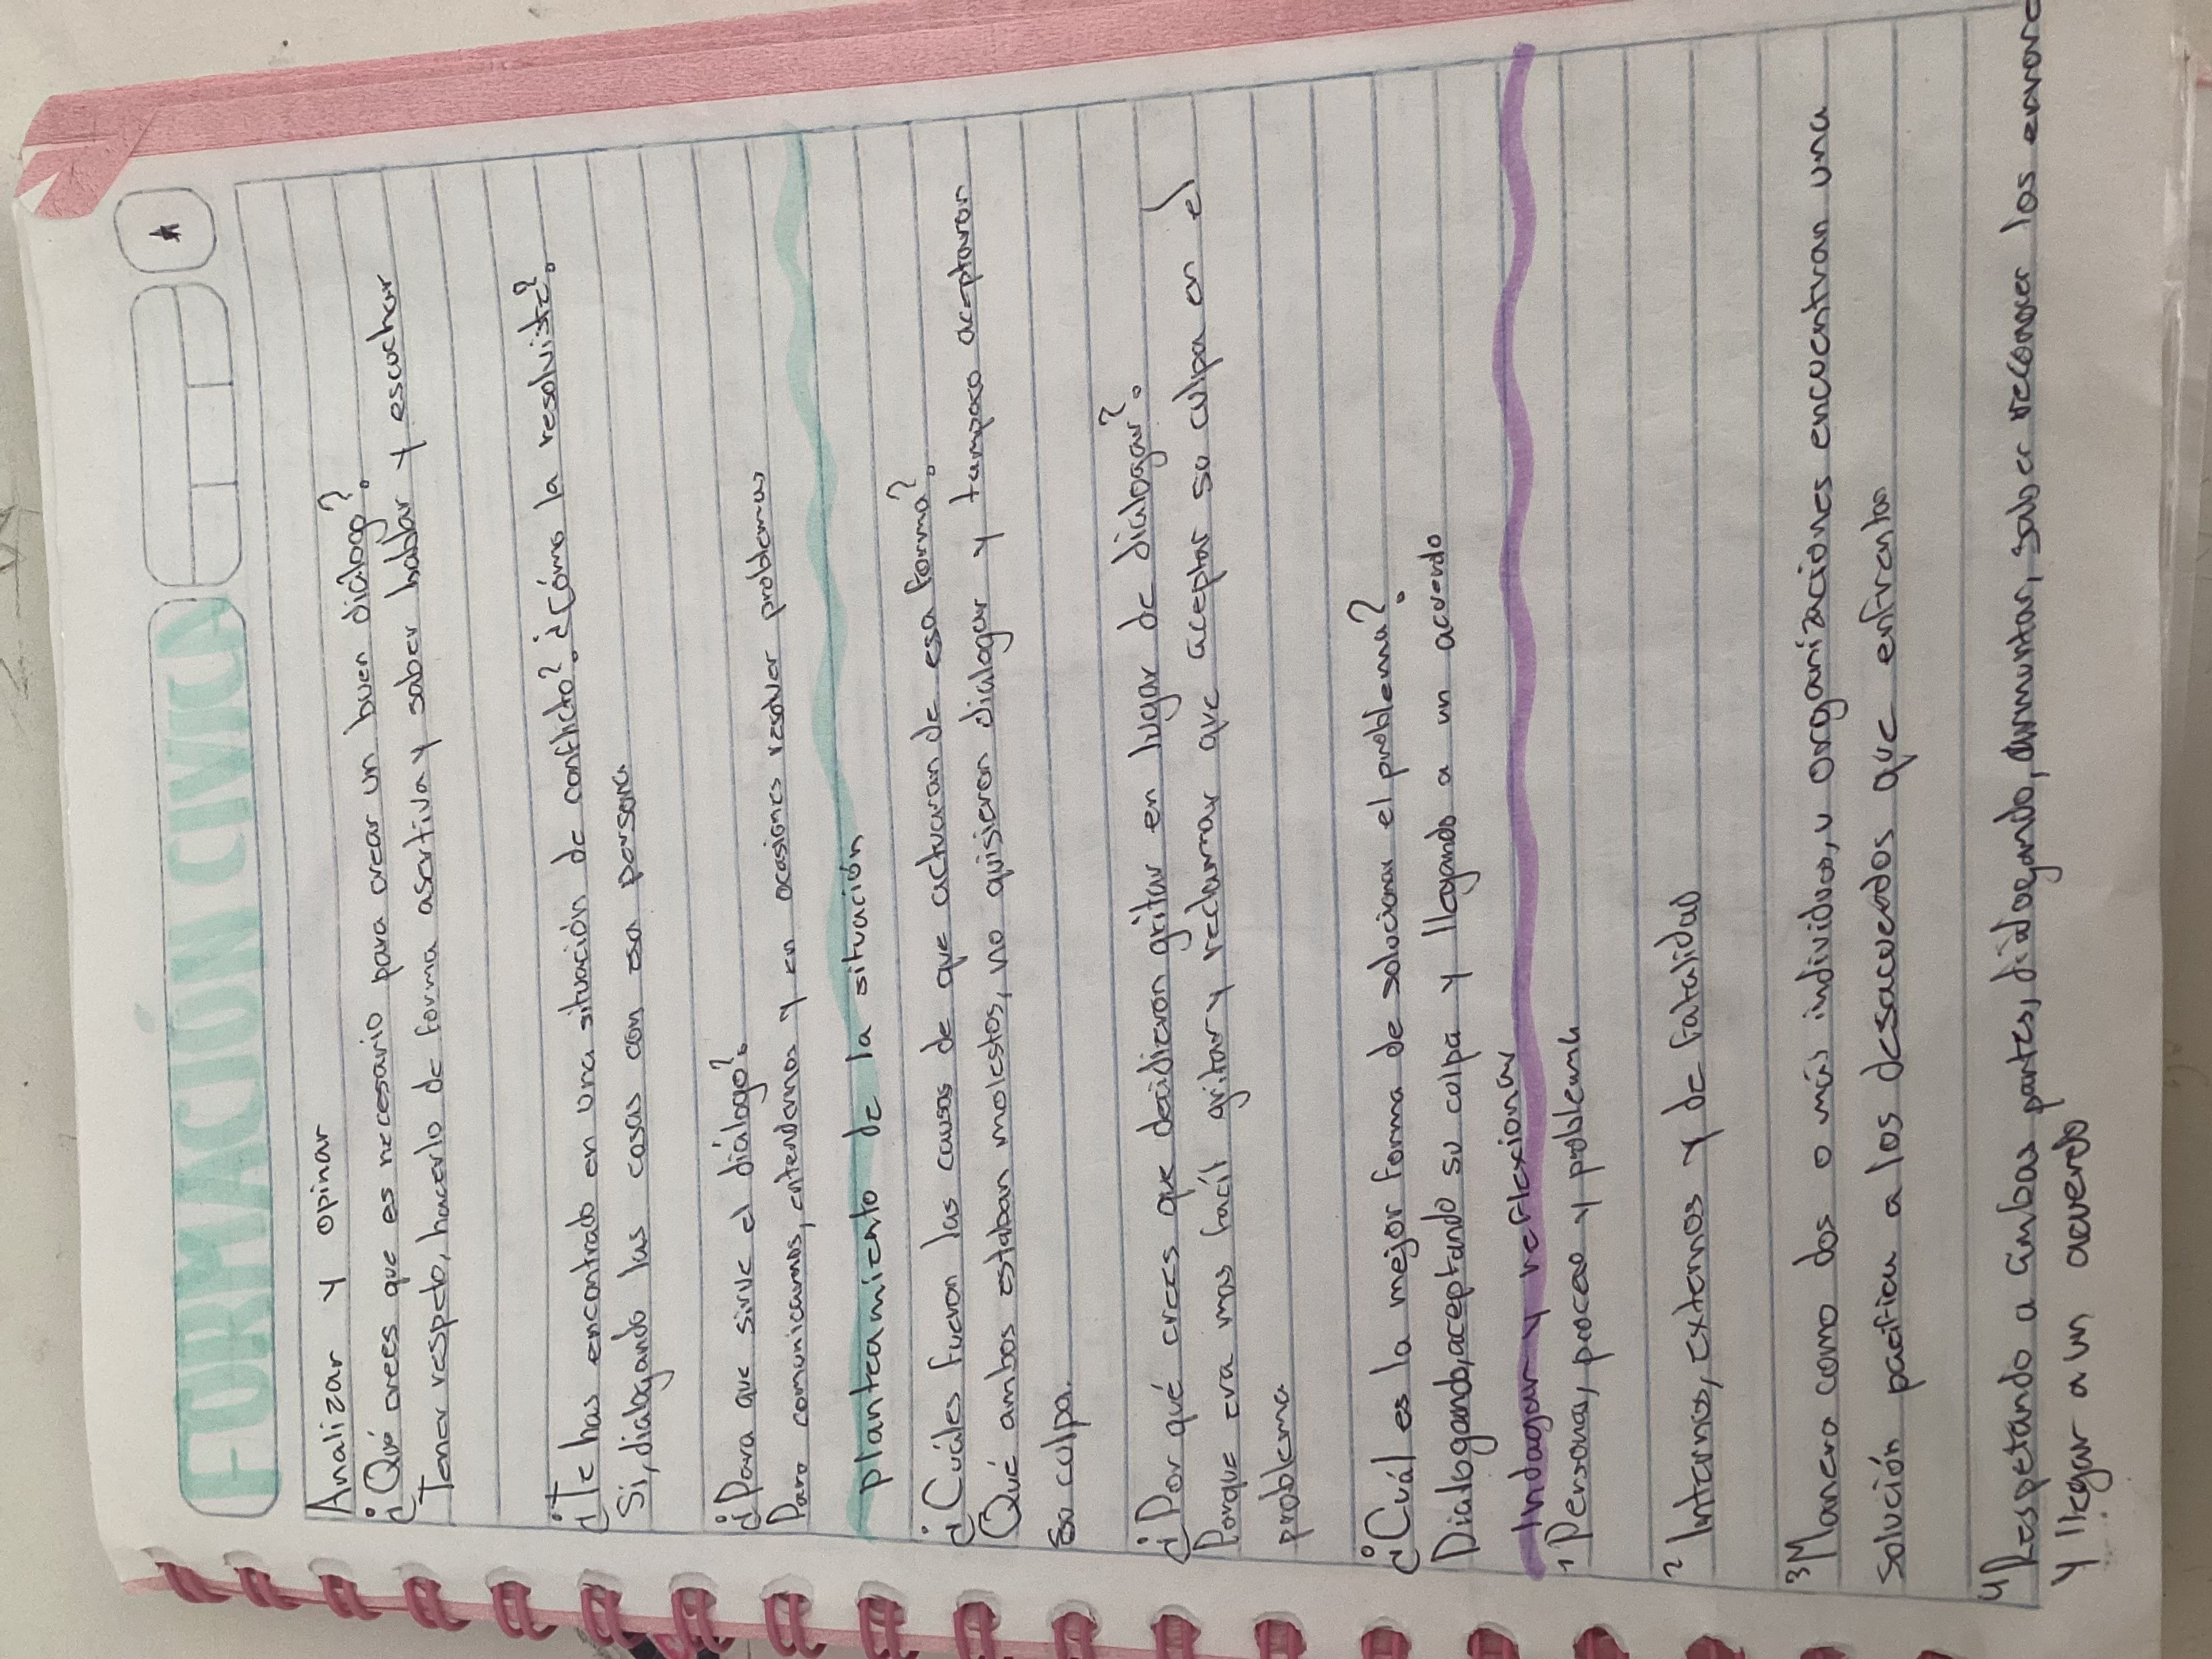 FORMACIÓN CIVICA
Analizar y opinar
¿Qué crees que es necesario para crear un buen diálogo?
Tener respeto, hacerlo de forma asertiva y saber hablar y escuchar
¿Te has encontrado en una situación de conflicto? ¿Cómo la resolviste?
Si, dialogando las cosas con esa persona
¿Para que sirve el diálogo?
Para comunicarnos, entendernos y en ocasiones resolver problemas
planteamiento de la situación
¿Cuáles fueron las causas de que actuaran de esa forma?
Qué ambos estaban molestos, no quisieron dialogar y tampoco aceptaron
su culpa.
¿Por qué crees que decidieron gritar en lugar de dialogar?
Porque era mas fácil gritar y reclamar que aceptar su culpa en el
problema
¿Cuál es la mejor forma de solucionar el problema?
Dialogando, aceptando su culpa y llegando a un acuerdo
Indagar y reflexionar
1 Personas, proceso y problema
2 Internos, externos y de fatalidad
3 Manera como dos o más individuos, u organizaciones encuentran una
solución pacifica a los desacuerdos que enfrentan
4 Respetando a ambas partes, dialogando, saber reconocer los
y llegar a un acuerdo